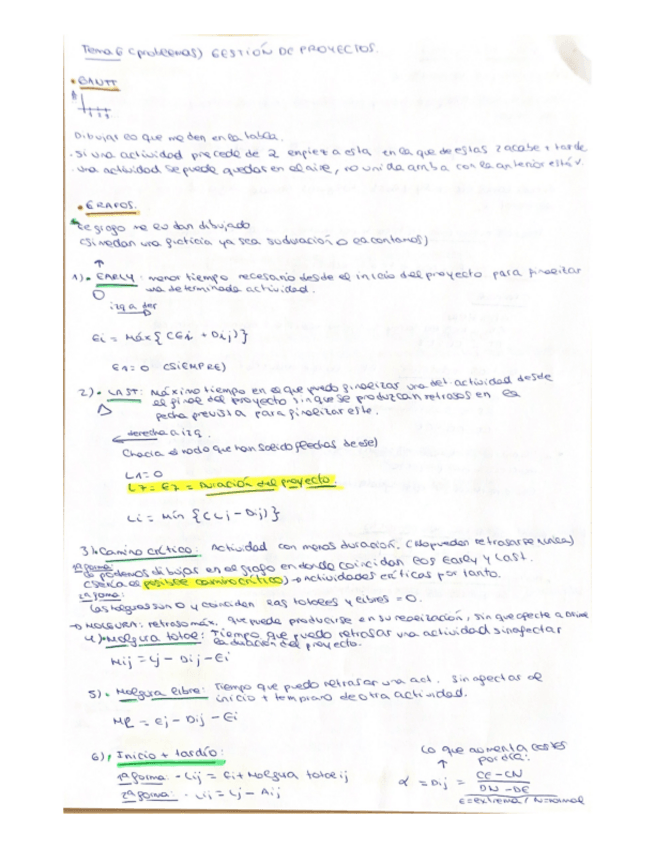 Tema 6 (problemas) GESTIÓN DE PROYECTOS.
• GANTT
Dibujar lo que me den en la tabla.
· Si una actividad precede de 2 empieza esta en la que de estas 2 acabe + tarde
· una actividad se puede quedar en el aire, no unida arriba con la anterior
• GRAFOS.
El grafo me lo dan dibujado
(Si me dan una ficticia ya sea su duración 0 la contamos)
1) • EARLY: menor tiempo necesario desde el inicio del proyecto para finalizar
una determinada actividad.
izq a der
Ei = Máx{(Ei + Dij)}
E1 = 0 (SIEMPRE)
2) • LAST: Máximo tiempo en el que puedo finalizar una det. actividad desde
el final del proyecto sin que se produzcan retrasos en la
fecha prevista para finalizar este.
derecha a izq.
(hacia el nodo que han salido flechas de ese)
L1 = 0
L7 = E7 = Duración del proyecto.
Li = Mín {(Lj - Dij)}
3) • Camino crítico: Actividad con menos duración. (No pueden retrasarse nunca)
1ª forma:
lo podemos dibujar en el grafo en donde coincidan los Early y Last.
(sería el posible camino crítico) → actividades críticas por tanto.
2ª forma:
las holguras son 0 y coinciden las totales y libres = 0.
→ HOLGURA: retraso máx. que puede producirse en su realización, sin que afecte a
4) • Holgura total: Tiempo que puedo retrasar una actividad sin afectar
la duración del proyecto.
Hij = Lj - Dij - Ei
5) • Holgura libre: Tiempo que puedo retrasar una act. sin afectar al
inicio + temprano de otra actividad.
HL = Ej - Dij - Ei
6) • Inicio + tardío:
1ª forma: - Lij = Ei + Holgura total ij
2ª forma: · Lij = Lj - Aij
Lo que aumenta costes
por día:
α = Dij = CE - CN / DN - DE
E = extrema / N = normal